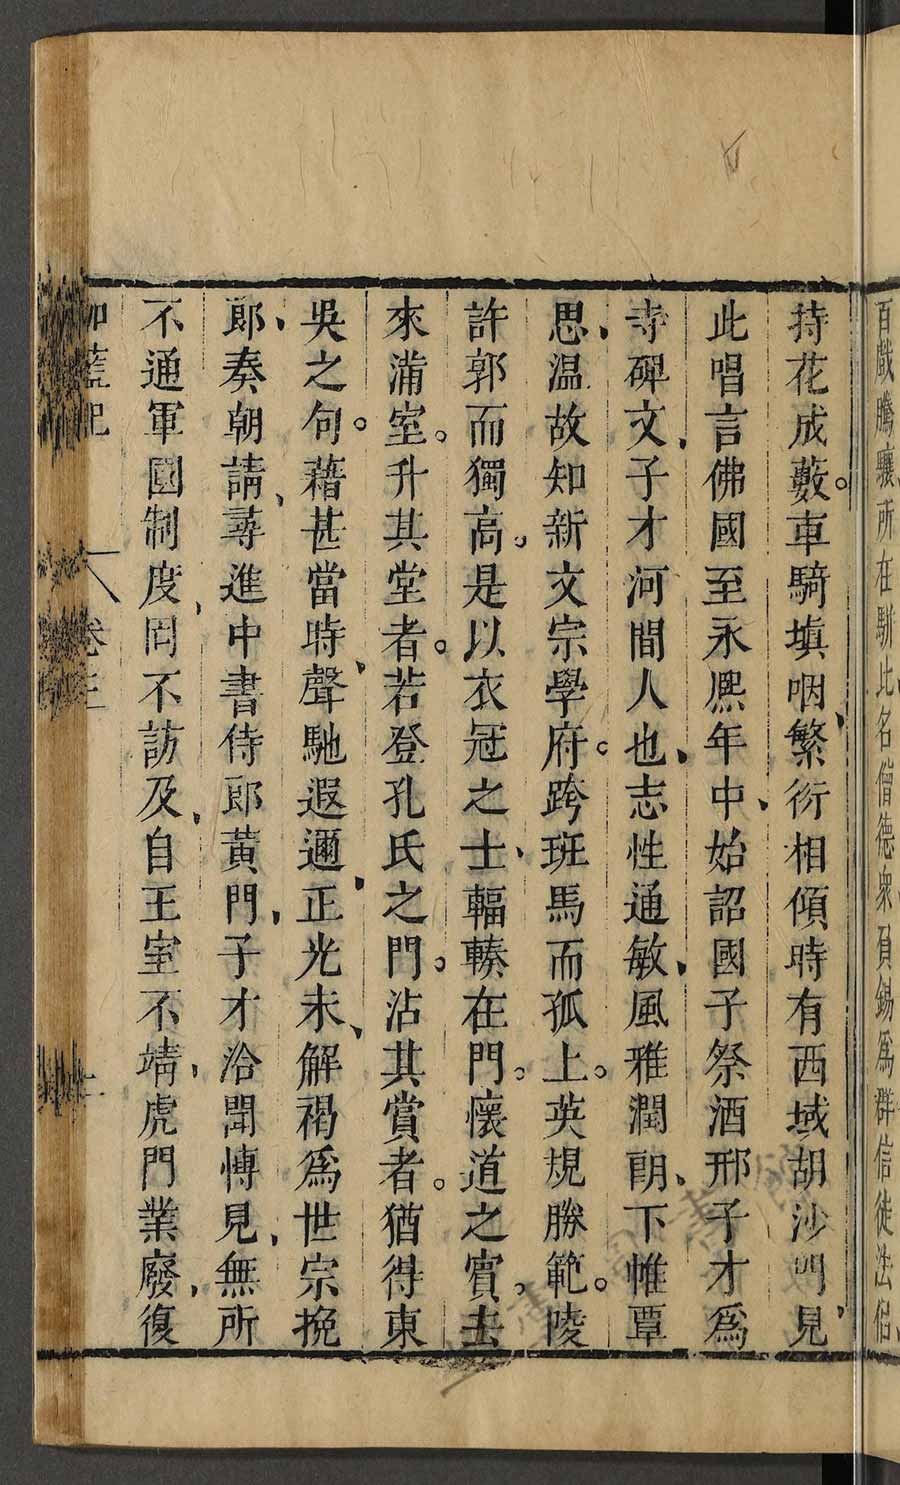 百戲騰驤所在駢比名僧德衆負錫爲群信徒法侶
持花成藪車騎塡咽繁衍相傾時有西域胡沙門見
此唱言佛國至永熙年中始詔國子祭酒邢子才爲
寺碑文子才河間人也志性通敏風雅潤朗下帷覃
思温故知新文宗學府跨班馬而孤上英規勝範陵
許郭而獨高是以衣冠之士輻輳在門懷道之賓去
來滿室升其堂者若登孔氏之門沾其賞者猶得東
吳之句藉甚當時聲馳遐邇正光末解褐爲世宗挽
郎奏朝請尋進中書侍郎黃門子才洽聞愽見無所
不通軍國制度罔不訪及自王室不靖虎門業廢復
伽藍記 卷三